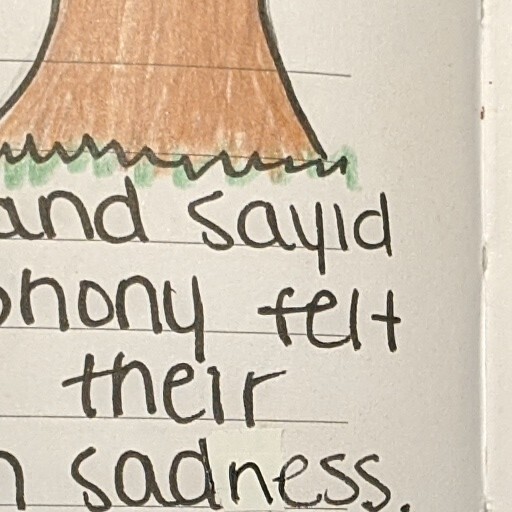 and sayid
phony felt
their
sadness.